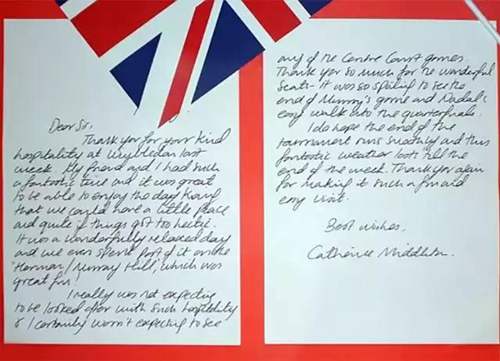 Dear Sir,
Thank you for your kind
hospitality at Wimbledon last
week. My friend and I had such
a fantastic time and it was great
to be able to enjoy the day knowing
that we could have a little peace
and quiet if things got too hectic.
It was a wonderfully relaxed day
and we even spent part of it on the
'Henman/Murray Hill', which was
great fun!
I really was not expecting
to be looked after with such hospitality
& I certainly wasn't expecting to see
any of the Centre Court games
Thank you so much for the wonderful
Seats - It was so exciting to see the
end of Murray's game and Nadal's
easy walk into the quarterfinals.
I do hope the end of the
tournament runs smoothly and this
fantastic weather lasts till the
end of the week. Thank you again
for making it such a fun and
easy visit.
Best wishes,
Catherine Middleton.